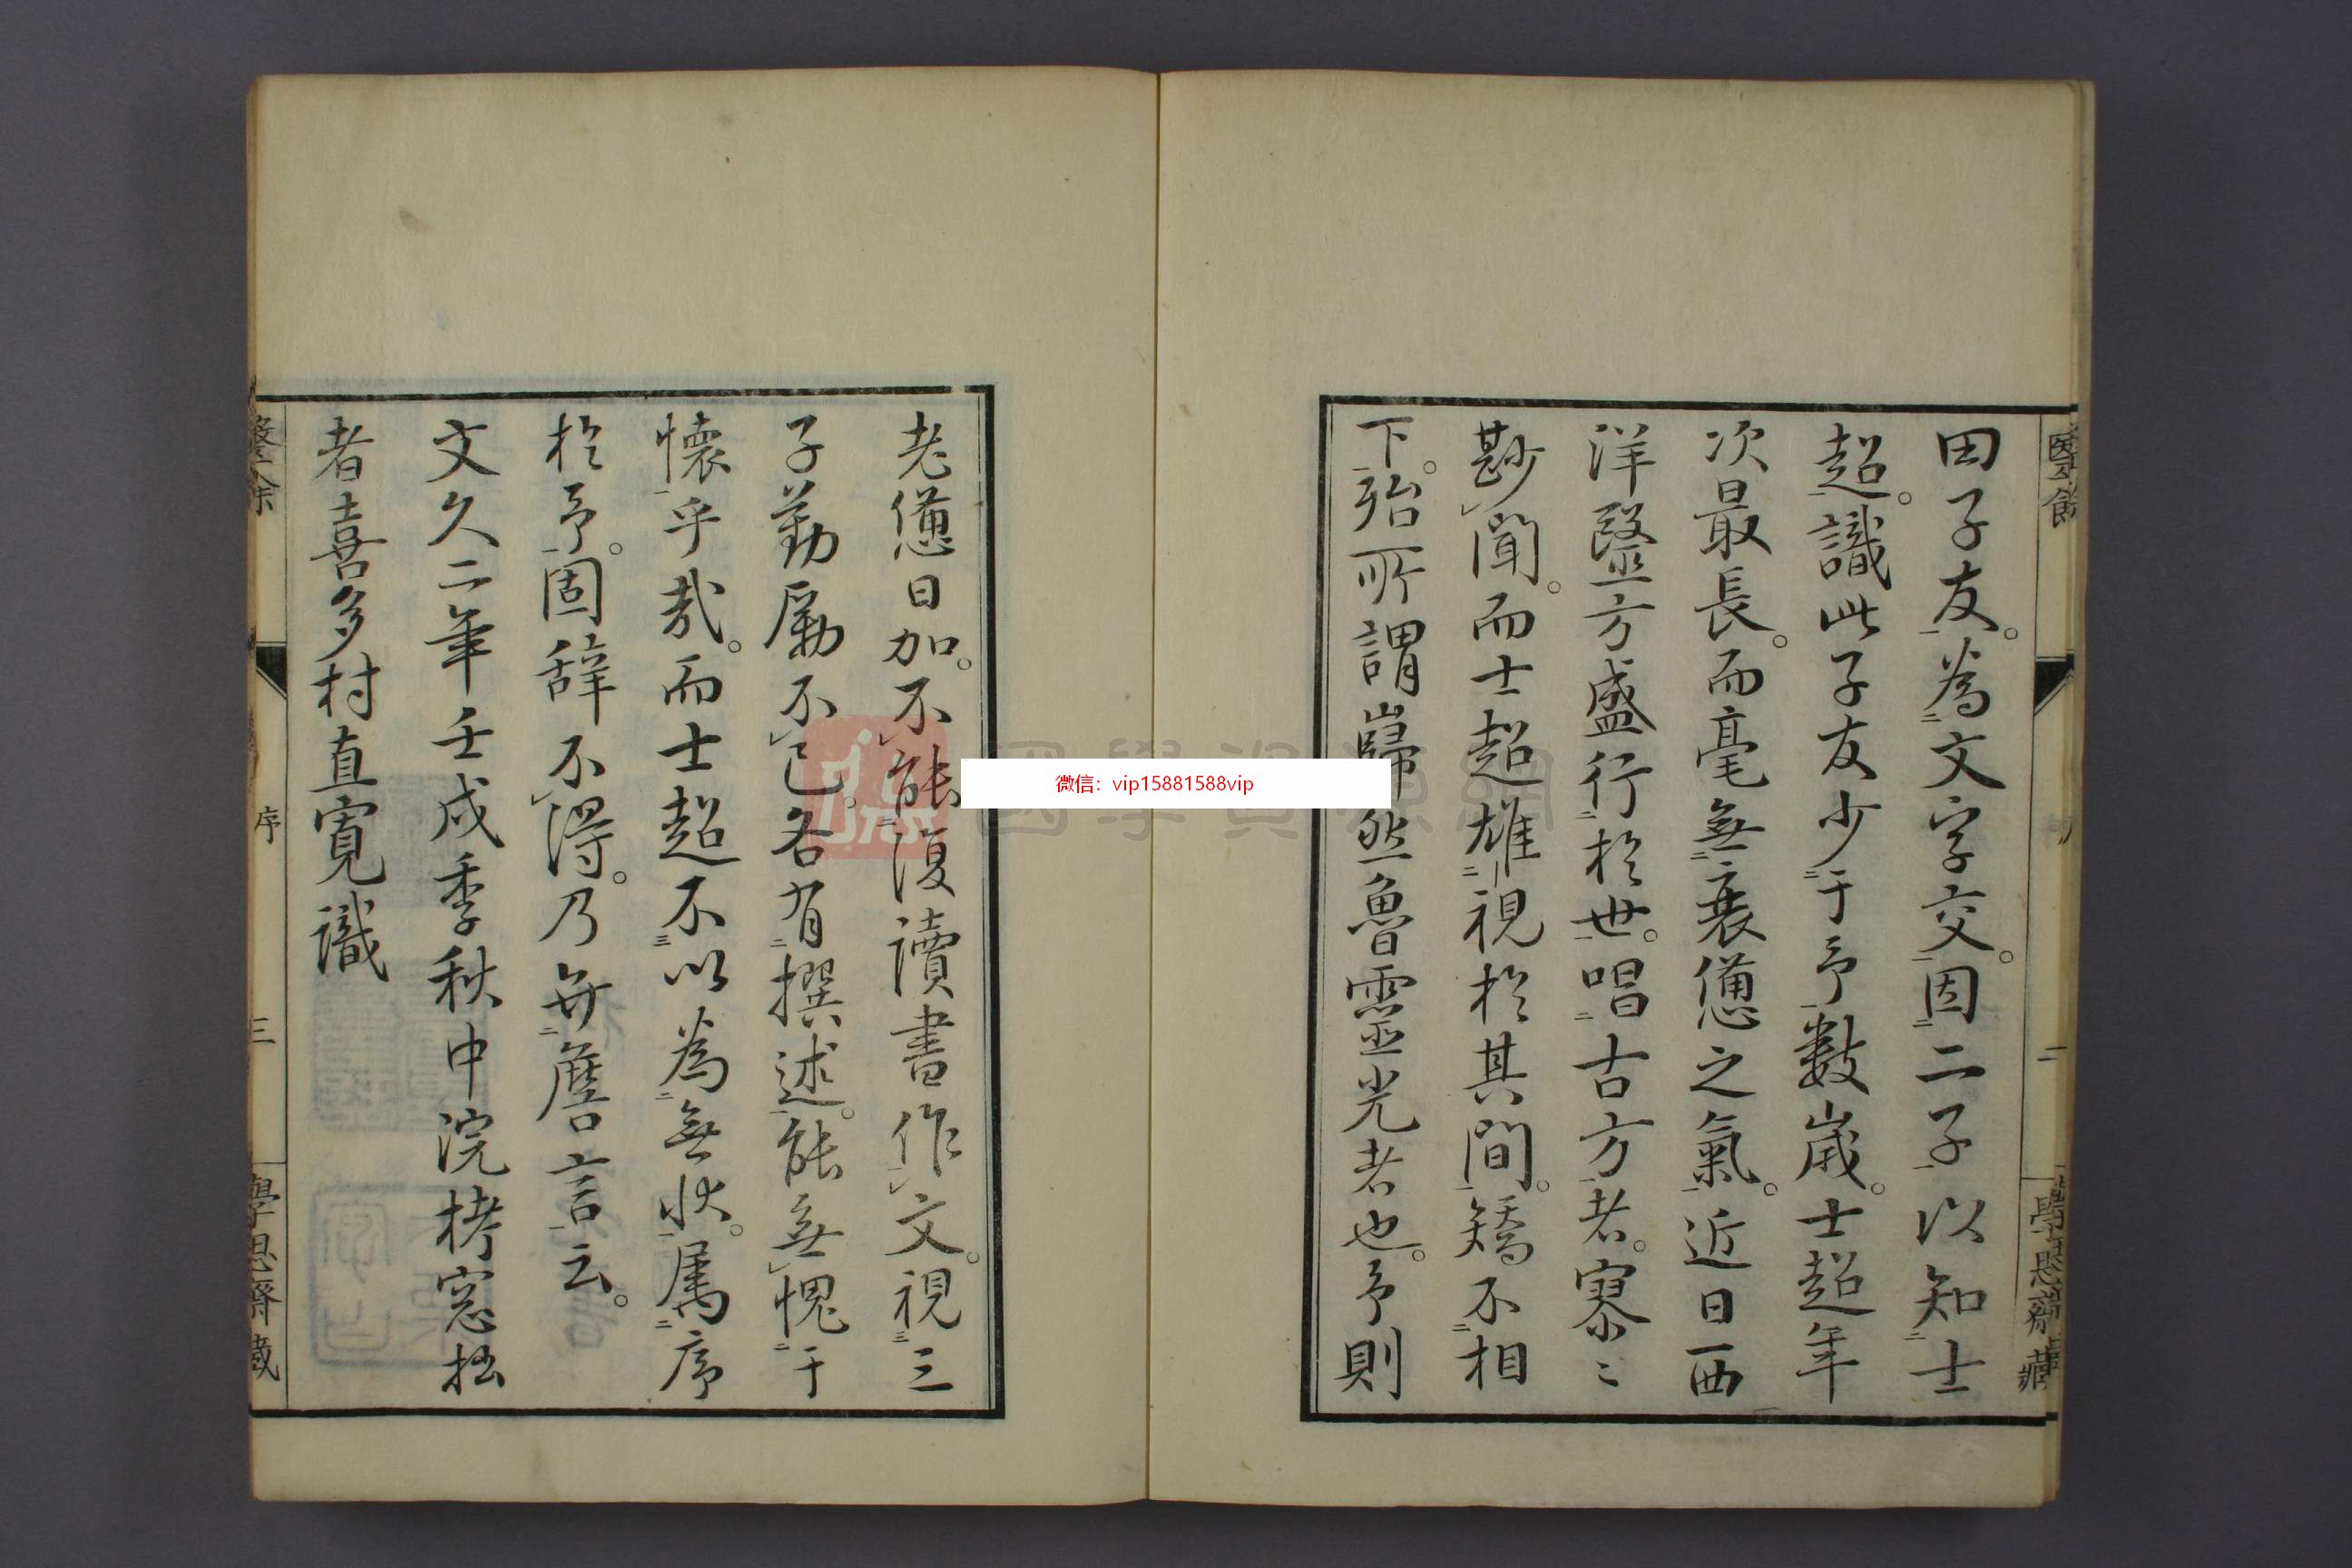 田子友。為文字交。因二子以知士
超。識此子友少于予數歲。士超年
次最長。而毫無衰憊之氣。近日西
洋醫方盛行於世。唱古方者。寥〻
尠聞。而士超雄視於其間。矯不相
下。殆所謂巋然魯靈光者也。予則
老憊日加。不能復讀書作文。視三
子勤勵不已。各有撰述。能無愧于
懷乎哉。而士超不以為無狀。属序
於予。固辞不得。乃弁詹言云。
文久二年壬戌季秋中浣栲窓拙
者喜多村直寛識
醫餘
二
學思齋藏
序
三
學思齋藏
微信：vip15881588vip
國學資源網